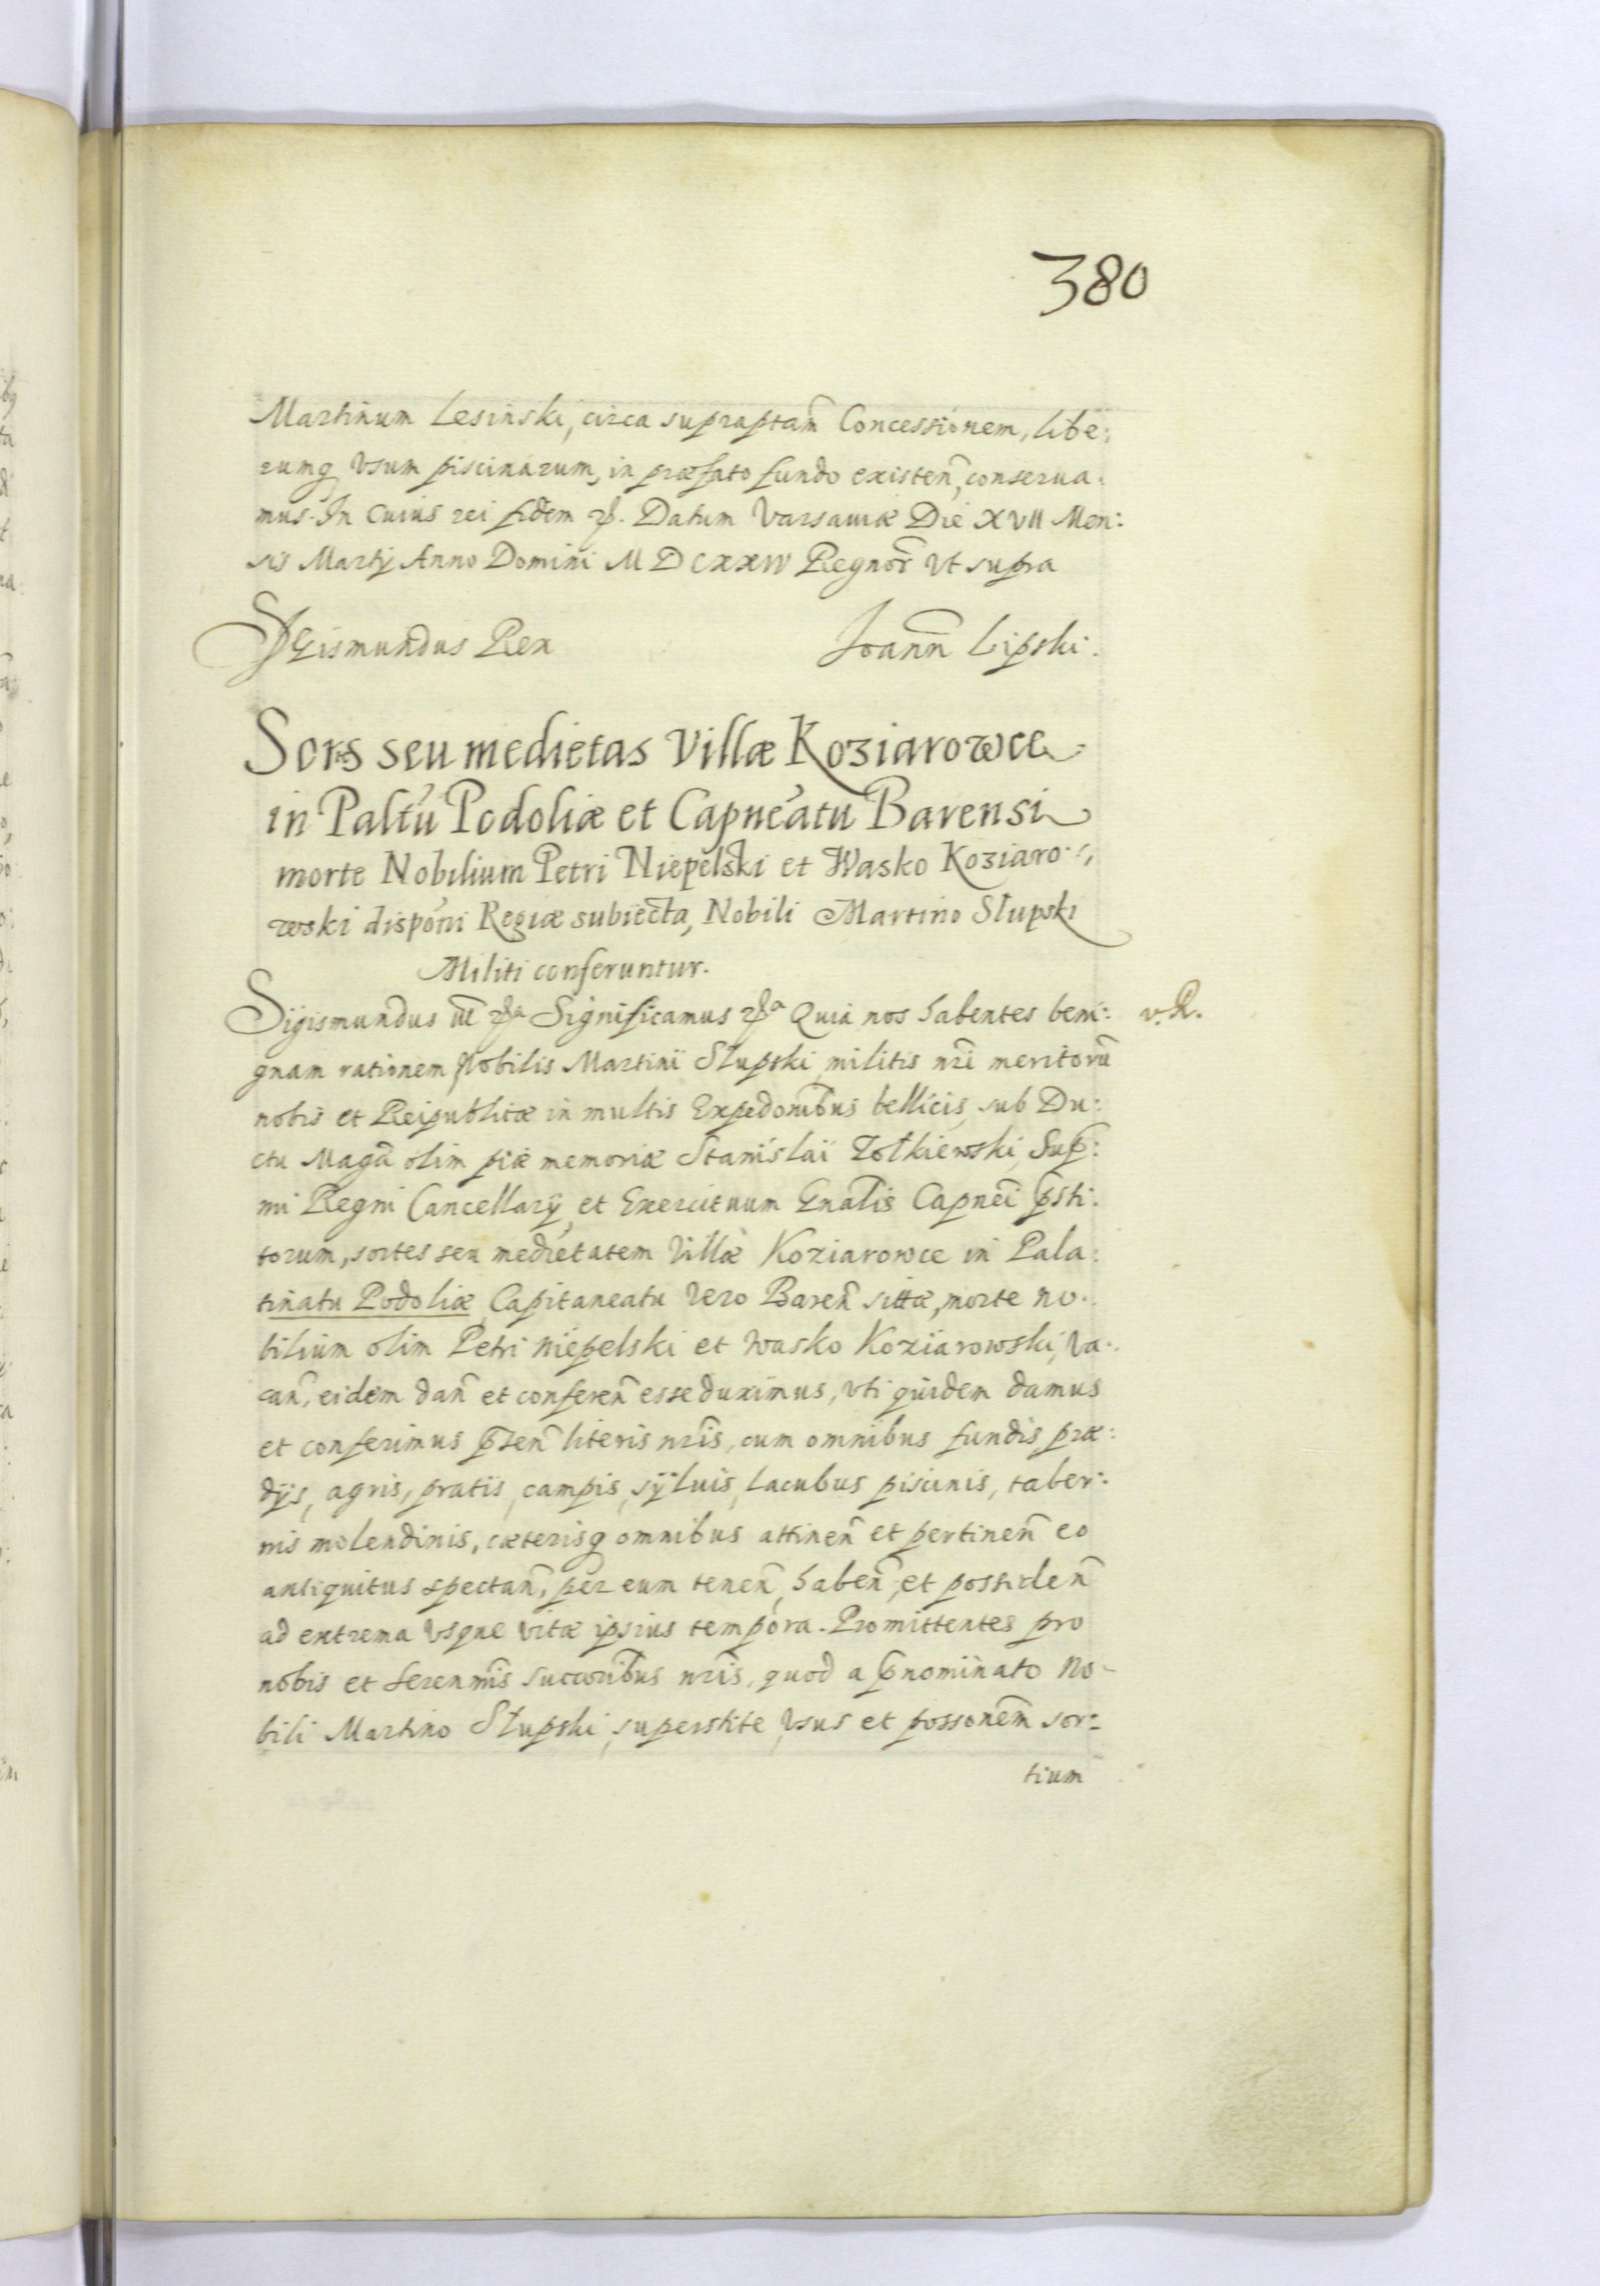 380
Martinum Lesinski, circa supraptam̃ Concessionem, libe:
rumq̃ Vsum piscinarum, in præfato fundo existeñ, conserua:
mus. In Cuius rei fidem &. Datum Varsauiæ Die XVII Men:
sis Martij Anno Domini M D CXXIV Regnor̃ Vt supra
Sigismundus Rex Ioann̄ Lipski.
Sors seu medietas Villæ Koziarowce
in Paltũ Podoliæ et Capneatu Barensi
morte Nobilium Petri Niepelski et Wasko Koziaro:
wski disponi Regiæ subiecta, Nobili Martino Słupski
Militi conferuntur.
Sigismundus III &a Significamus &a Quia nos habentes beni: v. R.
gnam rationem Nobilis Martini Słupski militis nr̃i meritorũ
nobis et Reipublicæ in multis Expedonibus bellicis, sub Du:
ctu Magci olim piæ memoriæ Stanislai Zołkiewski, Sup̃:
mi Regni Cancellarij, et Exercituum Gñalis Capnei p̃sti:
torum, sortes seu medietatem Villæ Koziarowce in Pala:
tinatu Podoliæ Capitaneatu Vero Bareñ sittæ, morte no:
bilium olim Petri Niepelski et Wasko Koziarowski, Va:
cañ, eidem dañ et confereñ esse duximus, Vti quidem damus
et conferimus p̃nteñ literis nr̃is, cum omnibus fundis, præ:
dijs, agris, pratis, campis, syluis, lacubus piscinis, taber:
nis molendinis, cæterisq̃ omnibus attineñ et pertineñ eo
antiquitus spectañ, per eum teneñ, habeñ, et possideñ
ad extrema Vsque Vitæ ipsius tempora. Promittentes pro
nobis et serenm̃is succoribus nr̃is, quod a p̃nominato No-
bili Martino Słupski, superstite, Vsus et possonem̃ sor=
tium